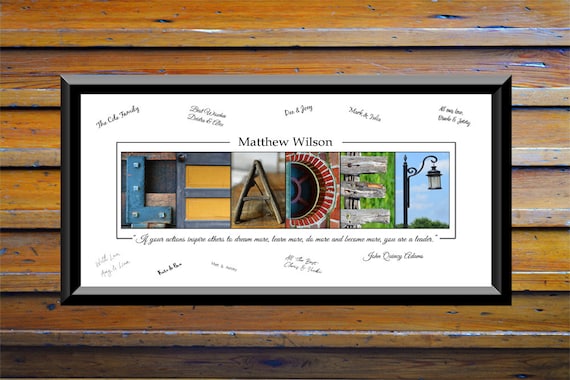 The Cole Family
Best Wishes
Deidra & Alex
Dee & Joey
Mark & Julia
All our love,
Matthew Wilson
LEADER
"If your actions inspire others to dream more, learn more, do more and become more, you are a leader."
John Quincy Adams
With Love,
Amy & Liam
Kate & Ben
Matt & Ashley
All The Best,